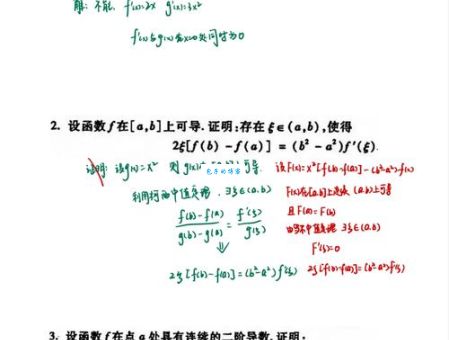 解: 不能, f'(x)=2x g'(x)=3x²
f'(x)与g'(x)在x=0处同时为0
2. 设函数 f 在[a,b]上可导. 证明:存在 ξ∈(a,b),使得
2ξ[f(b) - f(a)] = (b² - a²)f'(ξ).
证明: 设g(x)=x² 则 g(x)在 可导.
利用柯西中值定理, ∃ξ∈(a.b)
f(b)-f(a) / g(b)-g(a) = f'(ξ) / g'(ξ)
⇓
2ξ[f(b)-f(a)]=(b²-a²)f'(ξ)
设F(x)=x²[f(b)-f(a)]-(b²-a²)f(x)
F(x)在[a.b]上连续 (a.b)上可导
且 F(a)=F(b)
由罗尔中值定理 ∃ξ∈(a.b)
F'(ξ)=0
2ξ[f(b)-f(a)]=(b²-a²)f'(ξ)
3. 设函数 f 在点 a 处具有连续的二阶导数. 证明: